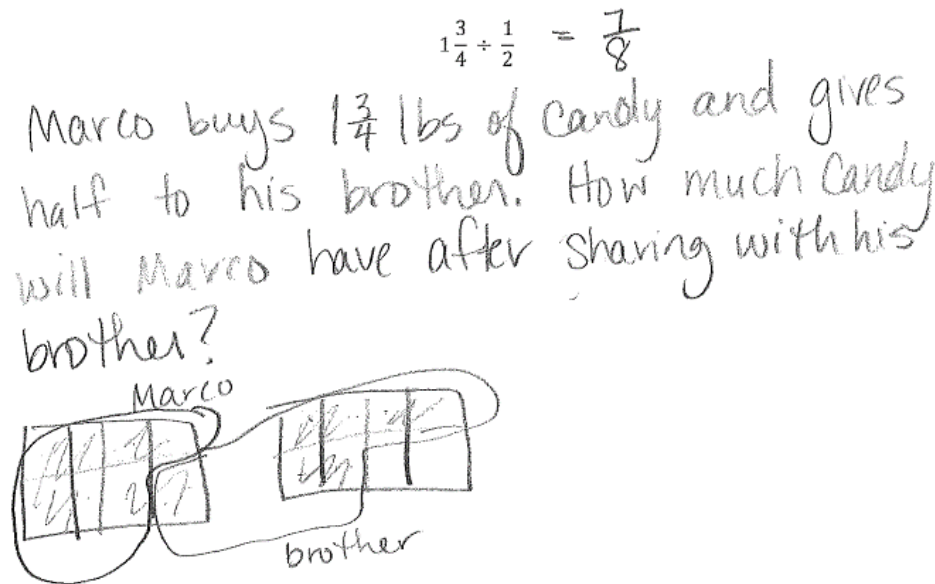 1 3/4 ÷ 1/2 = 7/8
Marco buys 1 3/4 lbs of Candy and gives
half to his brother. How much Candy
will Marco have after sharing with his
brother?
Marco
brother